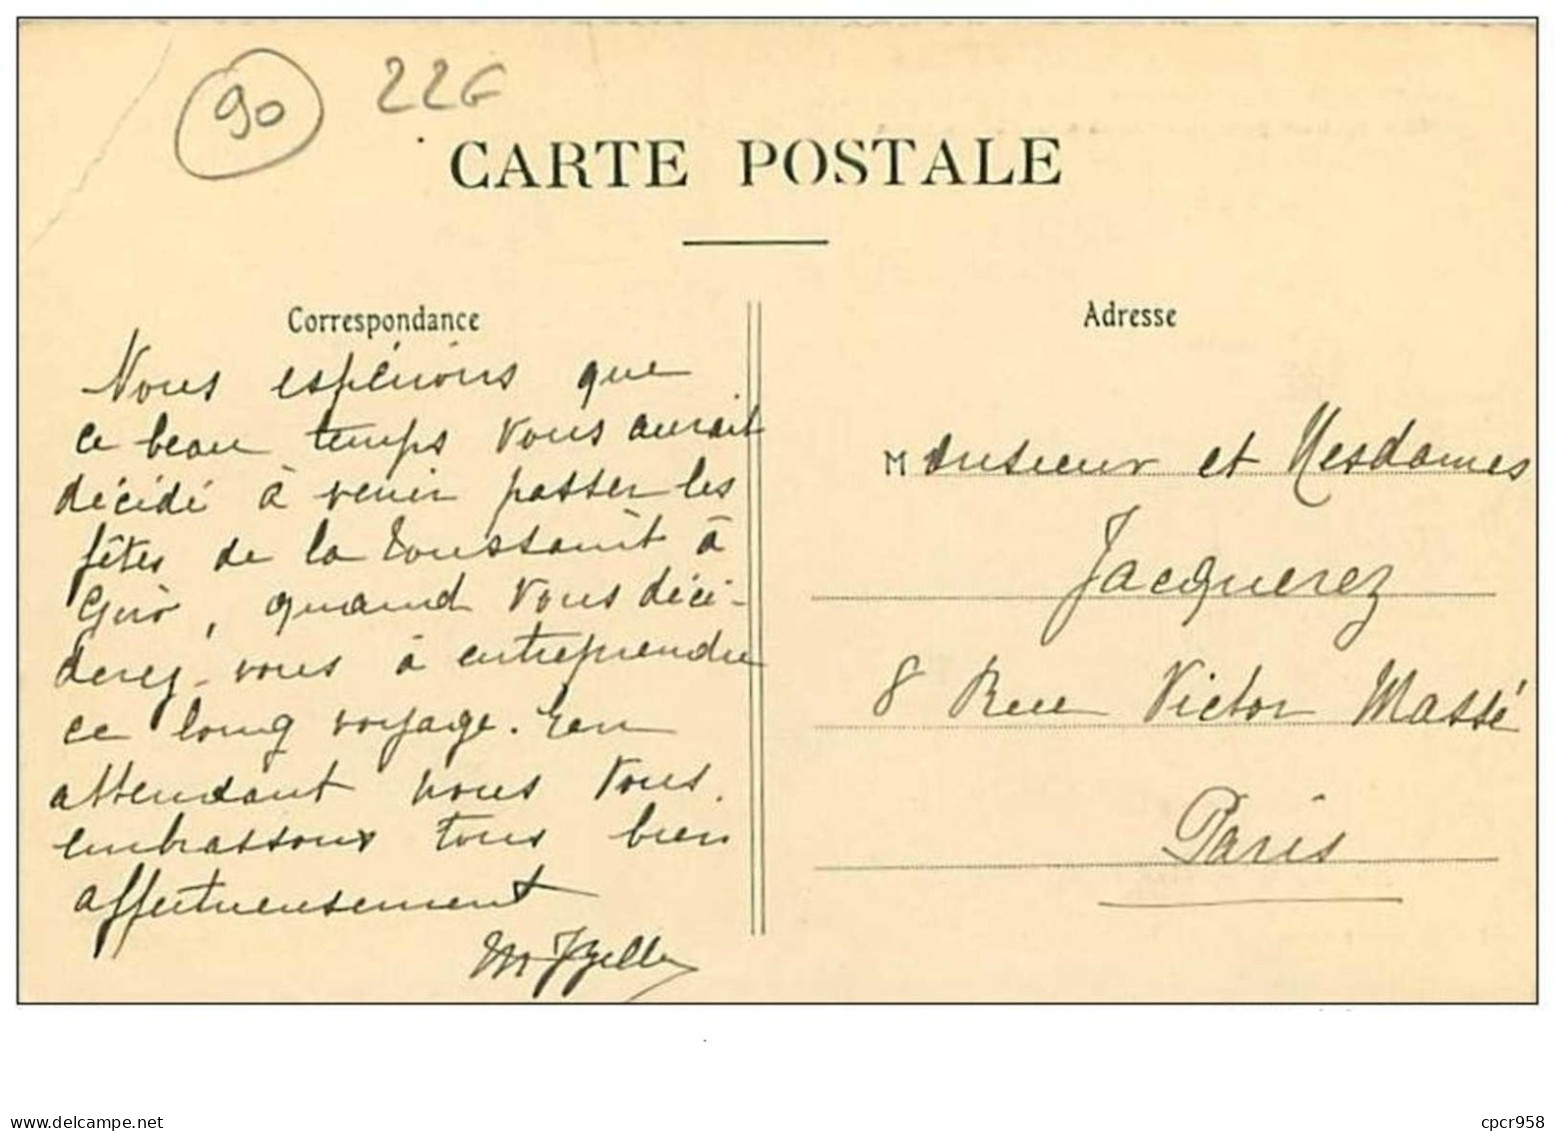 90
226
CARTE POSTALE
Correspondance
Nous espérions que
ce beau temps vous aurait
décidé à venir passer les
fêtes de la Toussaint à
Giro, quand vous déci-
derez-vous à entreprendre
ce long voyage. En
attendant nous vous
embrassons tous bien
affectueusement
Adresse
Monsieur et Mesdames
Jacquerez
8 Rue Victor Massé
Paris
www.delcampe.net
cpcr958